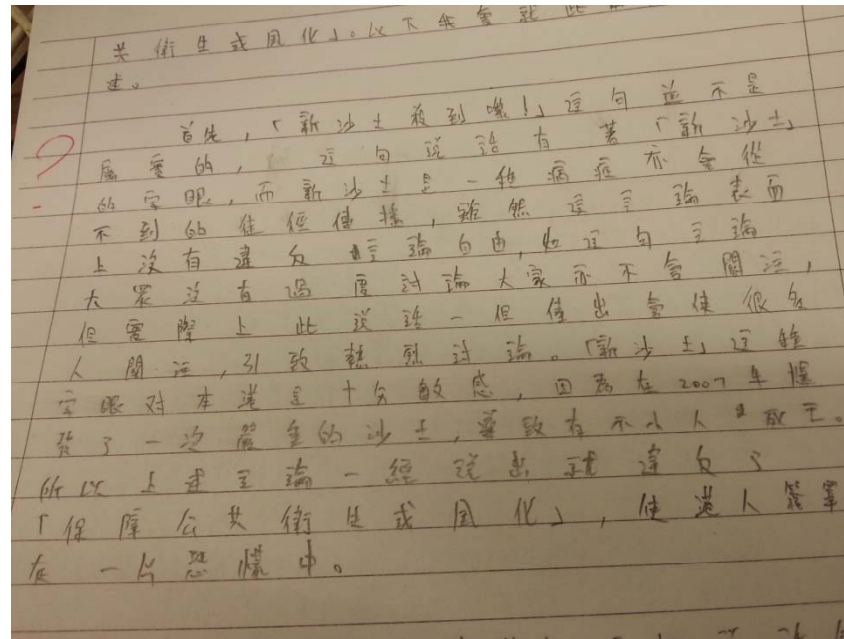 共衛生或風化」。以下我會就此
述。
首先,「新沙士殺到嚟!」這句並不是
屬實的, 這句說話有著「新沙士」
的字眼,而新沙士是一種病症亦會從
不到的途徑傳播,雖然這言論表面
上沒有違反言論自由,如這句言論
大眾沒有過度討論大家亦不會關注,
但實際上此說話一但傳出會使很多
人關注,引致熱烈討論。「新沙士」這種
字眼對本港是十分敏感,因為在2007年爆
發了一次嚴重的沙士,導致有不小人死亡。
所以上述言論一經說出就違反了
「保障公共衛生或風化」,使港人籠罩
在一片恐慌中。